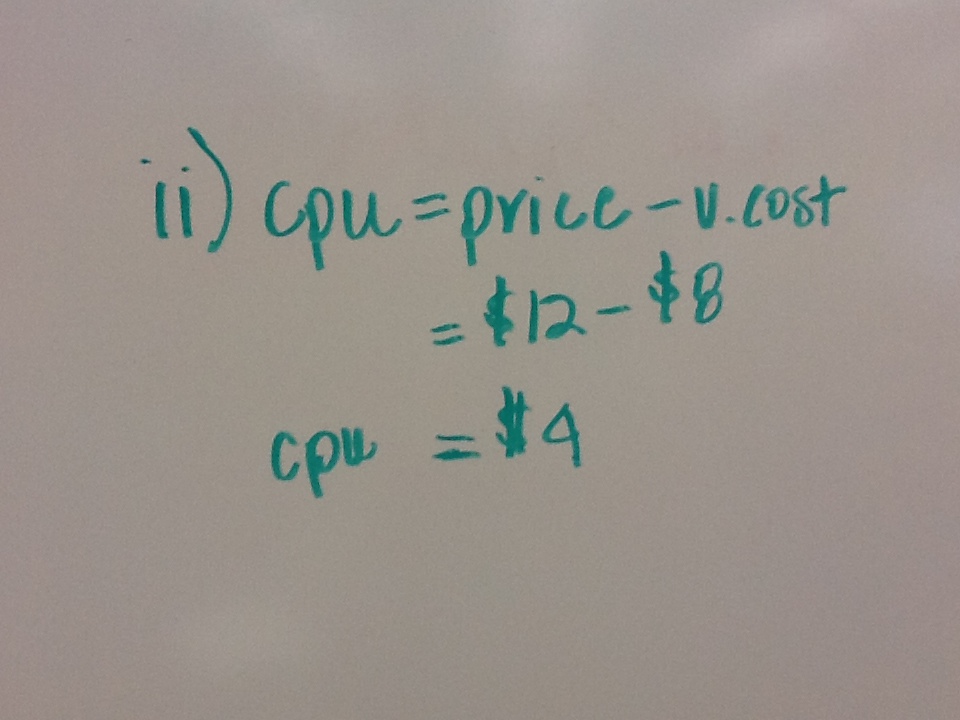 ii) cpu = price - v.cost
= $12 - $8
cpu = $4